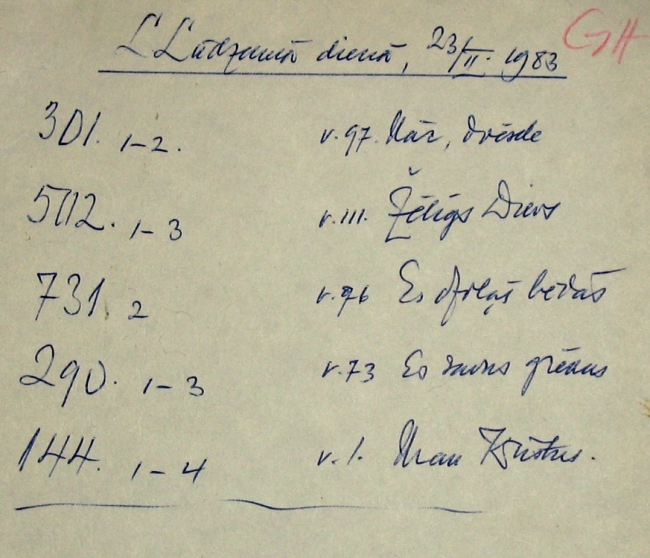 L Lūdzamā dienā, 23/II. 1983 GH
301. 1-2. v. 97. Nāc, dvēsele
502. 1-3 v. 111. Žēlīgs Dievs
731. 2 v. 76 Es dziļās bēdās
290. 1-3 v. 73 Es savus grēkus
144. 1-4 v. 1. Man Kristus.